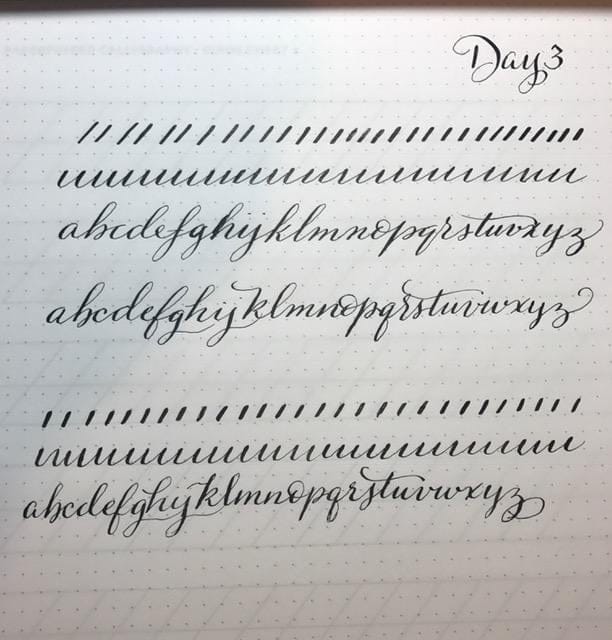 Day 3
abcdefghijklmnopqrstuvxyz
abcdefghijklmnopqrstuvwxyz
abcdefghijklmnopqrstuvwxyz